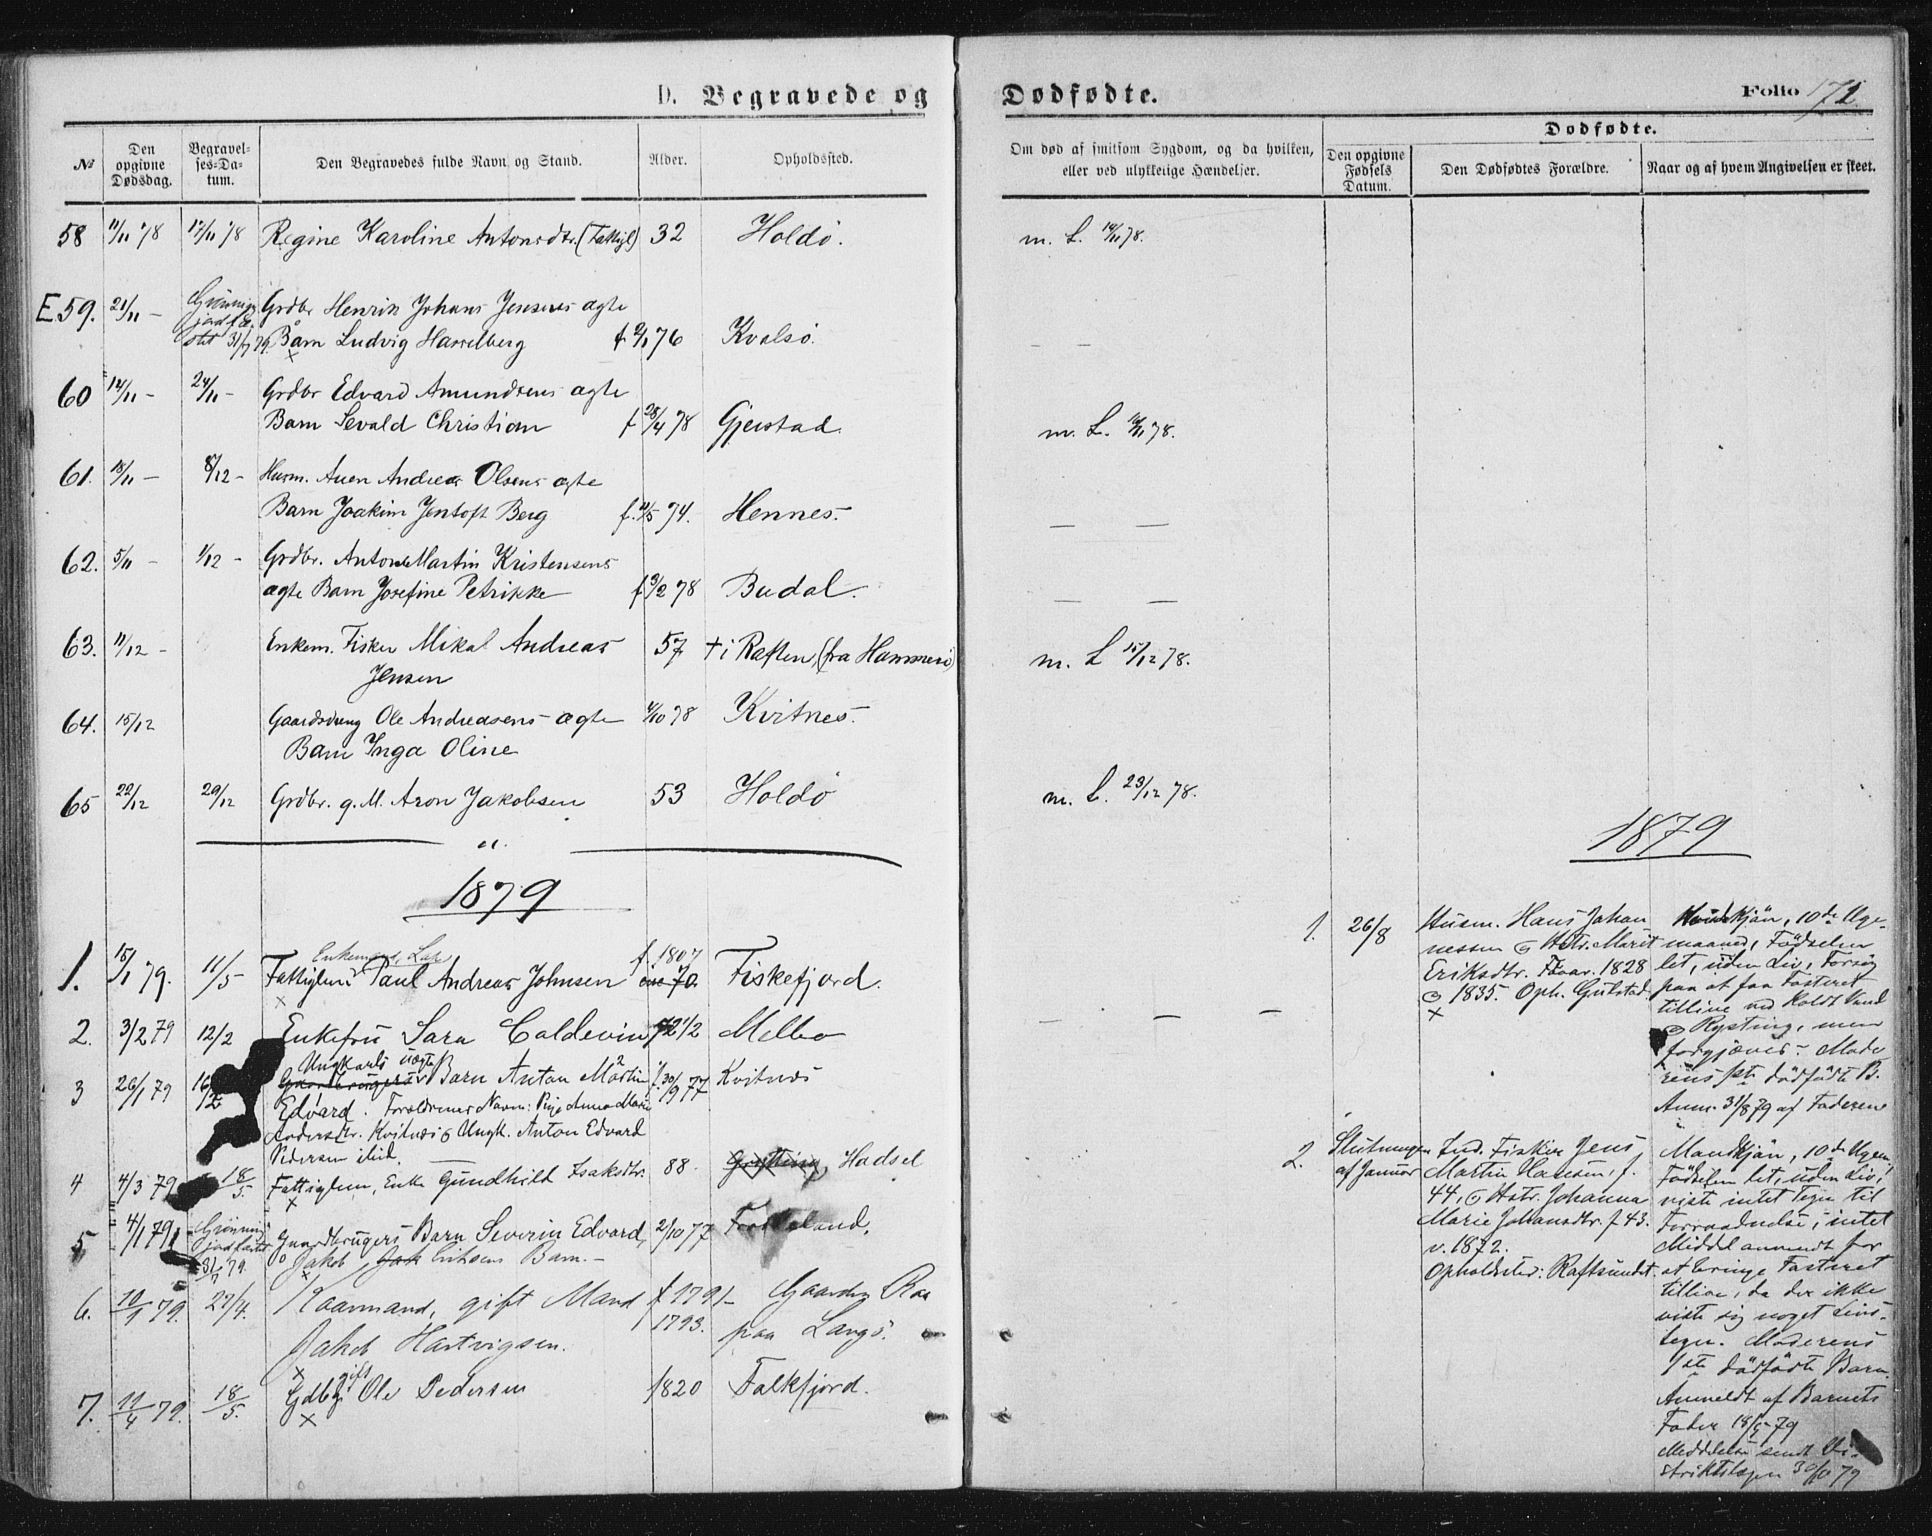 D. Begravede og Dødfødte.
Folio 172
№
Den opgivne Dødsdag.
Begravelses-Datum.
Den Begravedes fulde Navn og Stand.
Alder.
Opholdssted.
Om død af smitsom Sygdom, og da hvilken, eller ved ulykkelige Hændelser.
Dødfødte.
Den opgivne Fødsels Datum.
Den Dødfødtes Forældre.
Naar og af hvem Angivelsen er skeet.
58 11/11 78 17/11 78 Regine Karoline Antonsdtr. (Fattigl) 32 Holdö. m. L. 14/11 78.
E 59. 21/11 – Grdbr Henrik Johans Jensens ægte
Barn Ludvig Hasselberg f 2/1 76 Kvalsö. – –
60 14/11 – 24/11 – Grdbr Edvard Amundsens ægte
Barn Sevald Christian f 28/4 78 Gjerstad. m. L. 78.
61. 18/11 – 8/12 – Husm. Andreas Olsens ægte
Barn Joakim Jentoft Berg f. 74. Hennes. – –
62. 5/11 – 1/12 – Grdbr. Anton Martin Kristensens
ægte Barn Josefine Petrikke f 3/2 78 Budal. – –
63. 11/12 – Enkem. Fisker Mikal Andreas 57 † i Raften, (fra Hammerö) m. L 15/12 78.
Jensen
64. 15/12 Gaardsdreng Ole Andreasens ægte 4/10 78 Kvitnes.
Barn Inga Oline
65 22/12 29/12 Grdbr. g. M. Aron Jakobsen 53 Holdö m. L. 23/12 78.
1879
1879
Enkemand, Lax
1. 15/1 79. 11/5 Fattiglem Paul Andreas Johnsen f. 1807 70. Fiskefjord.
2. 3/2 79 12/2 Enkefru Sara Coldevin 72 1/2 Melbo – – –
Ungkarls uægte
3 26/1 79 16/2 Gaardbrugers Barn Anton Martin f. 30/9 77 Kvitnes
Edvard. Forældrenes Navn: Pige Anna Marie
Andersdtr. Kvitnes & Ungk. Anton Edvard
Pedersen ibid.
4 4/3 79 18/5 Fattiglem, Enke Gundhild Isaksdtr. 88. Grytting, Hadsel
5 4/1 79 31/7 79. Gaardbrugers Barn Severin Edvard, 2/10 77
Jakob Eriksens Barn. –
6. 79. 27/4. Kaarmand, gift Mand f 1791– Gaarden
Jakob Hartvigsen. 1793. paa Langö.
gift
7. 11/4 79. 18/5. Gdbr Ole Pedersen 1820 Falkfjord.
1. 26/8
Husm. Hans Johan-
nessen & Hstr. Marit
Eriksdtr. F. 1828
& 1835. Oph. Gulstad.
Kvindkjön, 10de Uge-
maaned, Födselen
let, uden Liv, Forsög
paa at faa Fosteret
tillive ved koldt Vand
& Rystning, men
forgjæves. Mode-
rens 1ste dödfödte B.
Anm. 31/8 79 af Faderen
2. Slutningen
af Januar
Ind. Fisker Jens
Martin Hansen, f.
44, & Hstr. Johanna
Marie Johansdtr. f. 43.
v. 1872.
Opholdssted: Raftsundet.
Mandkjön, 10de Ugem.,
Födselen let, uden Liv,
viste intet Tegn til
Forraadnelse, intet
Middel anvendt for
at bringe Fosteret
tillive, da der ikke
viste sig noget Livs-
tegn. Moderens
1ste dödfödte Barn.
Anmeldt af Barnets
Fader 18/5 79
Meddelelse sendt Di-
striktslægen 79